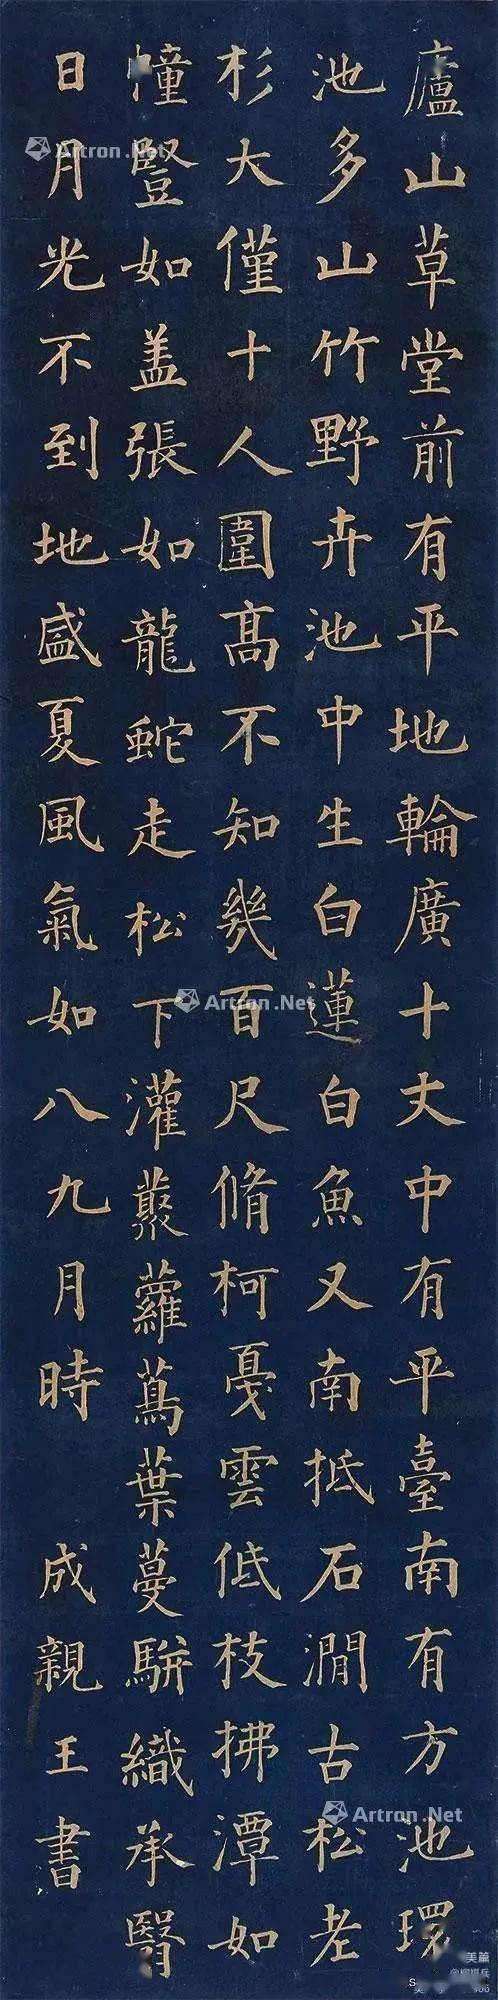 廬山草堂前有平地輪廣十丈中有平臺南有方池環
池多山竹野卉池中生白蓮白魚又南抵石澗古松老
杉大僅十人圍高不知幾百尺脩柯戞雲低枝拂潭如
幢豎如盖張如龍蛇走松下灌叢蘿蔦葉蔓駢織承翳
日月光不到地盛夏風氣如八九月時 成親王書
Artron.Net
Artron.Net
Artron.Net